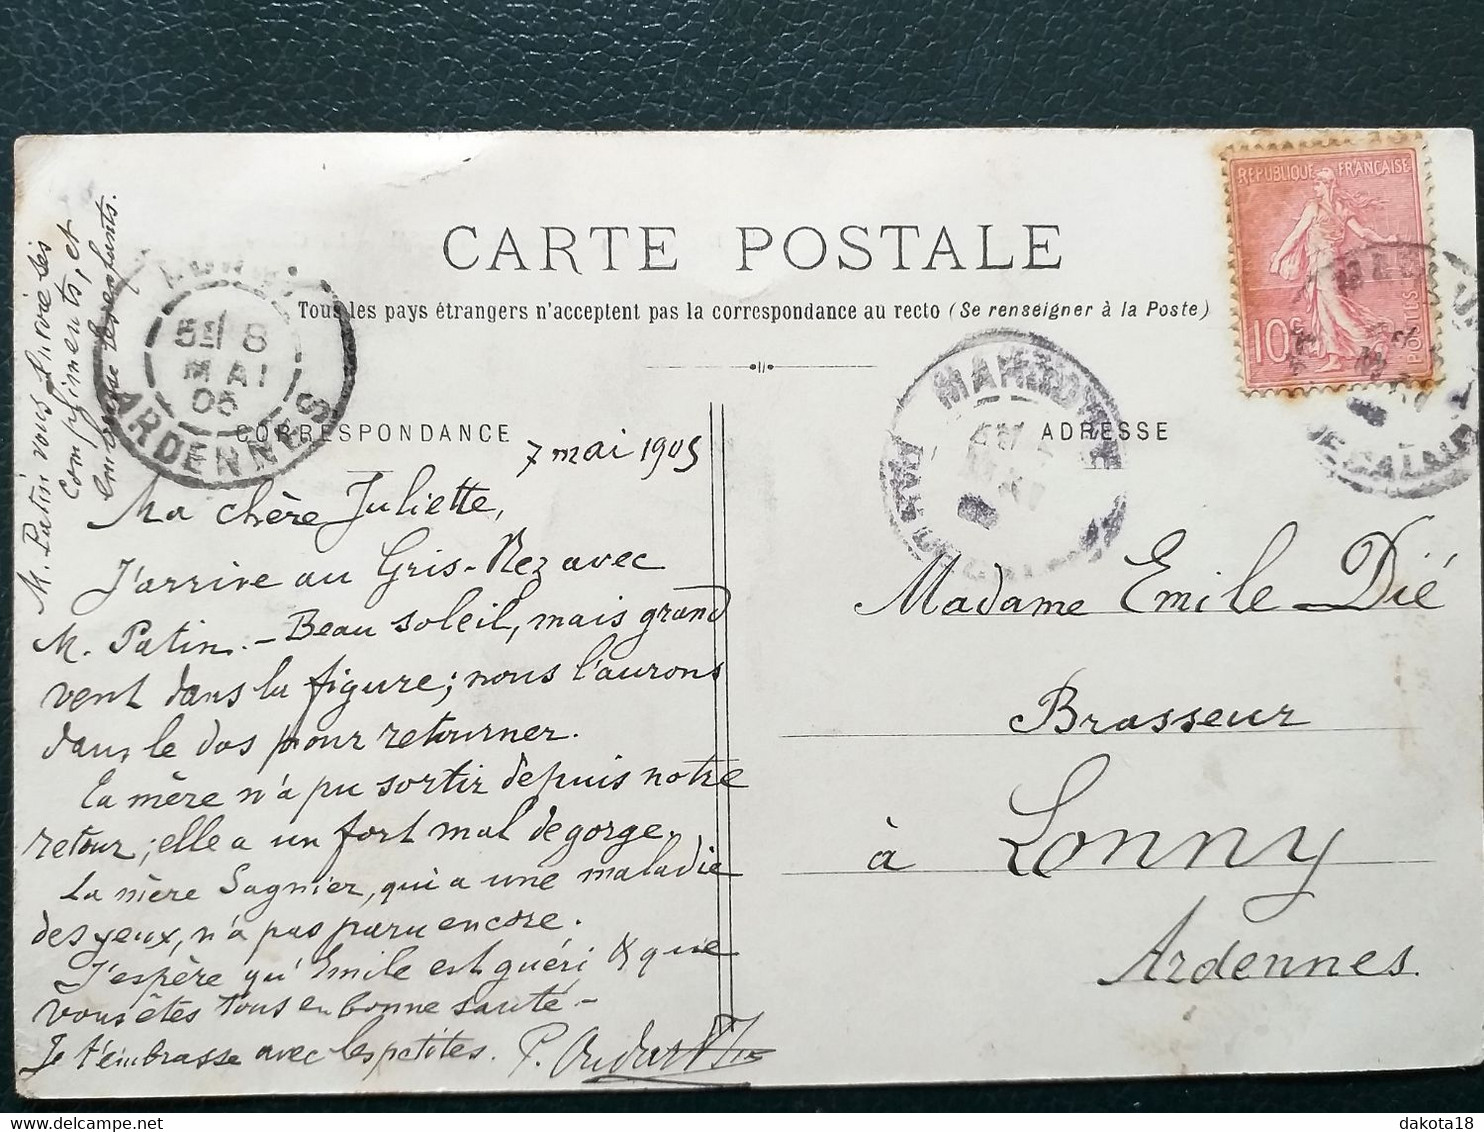 CARTE POSTALE
Tous les pays étrangers n'acceptent pas la correspondance au recto (Se renseigner à la Poste)
CORRESPONDANCE
ADRESSE
REPUBLIQUE FRANÇAISE
10c
POSTES
5E/ 8
MAI
05
ARDENNES
7 mai 1905
Ma chère Juliette,
J'arrive au Gris-Nez avec
M. Patin. - Beau soleil, mais grand
vent dans la figure; nous l'aurons
dans le dos pour retourner.
Ta mère n'a pu sortir depuis notre
retour; elle a un fort mal de gorge.
La mère Sagnier, qui a une maladie
des yeux, n'a pas paru encore.
J'espère qu'Emile est guéri & que
vous êtes tous en bonne santé -
Je t'embrasse avec les petites.
M. Patin vous envoie ses
compliments, et
embrasse les enfants.
Madame Emile Dié
Brasseur
à Lonny
Ardennes
dakota18